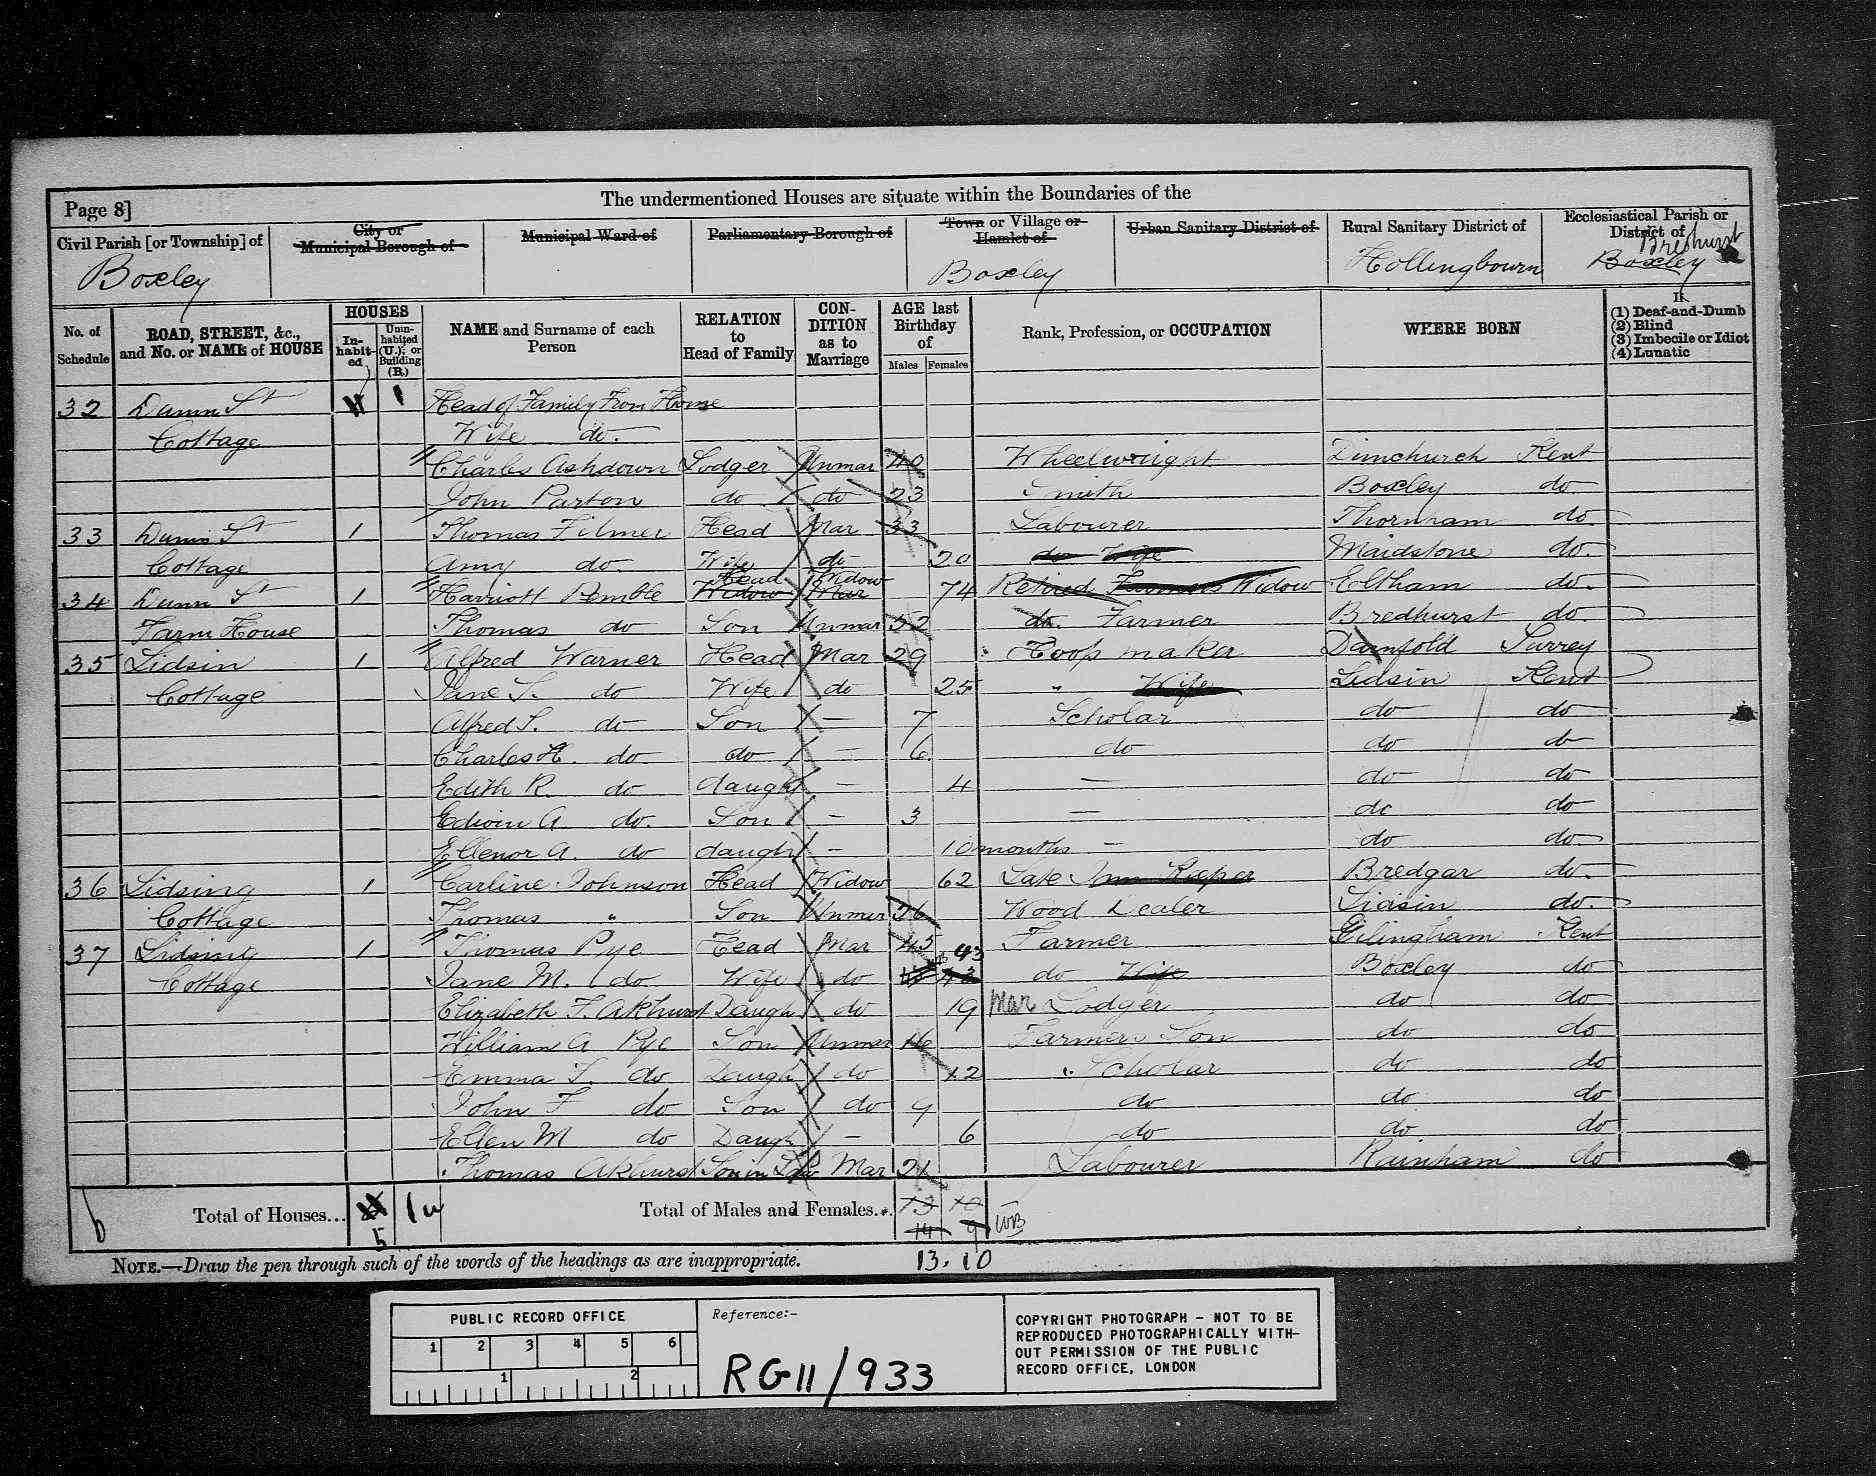 The undermentioned Houses are situate within the Boundaries of the
Page 8]
Civil Parish [or Township] of
City or Municipal Borough of
Municipal Ward of
Parliamentary Borough of
Town or Village or Hamlet of
Urban Sanitary District of
Rural Sanitary District of
Ecclesiastical Parish or District of
Boxley
Boxley
Hollingbourn
Boxley Bredhurst
No. of Schedule
ROAD, STREET, &c., and No. or NAME of HOUSE
HOUSES
In-habit-ed
Unin-habited (U.), or Building (B.)
NAME and Surname of each Person
RELATION to Head of Family
CON-DITION as to Marriage
AGE last Birthday of
Males
Females
Rank, Profession, or OCCUPATION
WHERE BORN
If
(1) Deaf-and-Dumb
(2) Blind
(3) Imbecile or Idiot
(4) Lunatic
32 Dunn St 1 Head of Family From Home
Cottage Wife do.
Charles Ashdown Lodger Unmar 40 Wheelwright Dimchurch Kent
John Parton do do 23 Smith Boxley do
33 Dunn St 1 Thomas Filmer Head Mar 33 Labourer Thornham do
Cottage Amy do. Wife do 20 do Wife Maidstone do.
34 Dunn St 1 Harriott Pemble Widow Head Mar Widow 74 Retired Farmers Widow Eoltham do.
Farm House Thomas do Son Unmar 52 do. Farmer Bredhurst do.
35 Lidsin 1 Alfred Warner Head Mar 29 Hoop maker Dunsfold Surrey
Cottage Jane S. do Wife do 25 " Wife Lidsin Kent
Alfred S. do Son – 7 Scholar do do
Charles H. do do – 6 do do do
Edith R. do daugh – 4 – do do
Edwin A do. Son – 3 – do do
Ellenor A. do daugh – 10 months – do do.
36 Lidsing 1 Carline Johnson Head Widow 62 Late Inn Keeper Bredgar do.
Cottage Thomas " Son Unmar 36 Wood Dealer Lidsin do.
37 Lidsing 1 Thomas Pye Head Mar 45 Farmer Gilingham Kent
Cottage Jane M. do. Wife do 43 43 do Wife Boxley do
Elizabeth F. Akhurst Daugh do 19 Mar Lodger do do
William A Pye Son Unmar 16 Farmers Son do do
Emma S. do Daugh do 12 " Scholar do do
John F do Son do 9 do do do
Ellen M do Daugh – 6 do do do
Thomas Akhurst Son in Law Mar 21 Labourer Rainham do
6
Total of Houses... 5 1 u
Total of Males and Females... 13 10
14 9 WB
13. 10
NOTE.—Draw the pen through such of the words of the headings as are inappropriate.
PUBLIC RECORD OFFICE
1 2 3 4 5 6
1 2
Reference:-
RG11/933
COPYRIGHT PHOTOGRAPH - NOT TO BE
REPRODUCED PHOTOGRAPHICALLY WITH-
OUT PERMISSION OF THE PUBLIC
RECORD OFFICE, LONDON